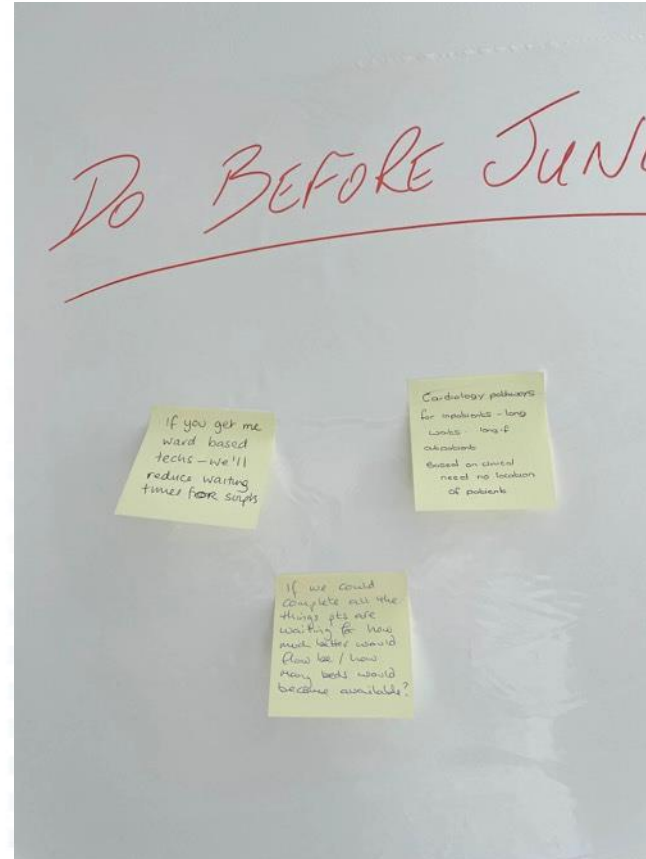 DO BEFORE JUN
If you get me
ward based
techs - we'll
reduce waiting
times FOR scripts
Cardiology pathways
for inpatients - long
waits
outpatients
Based on clinical
need no location
of patients
If we could
complete all the
things pts are
waiting for how
much better would
flow be / how
many beds would
become available?